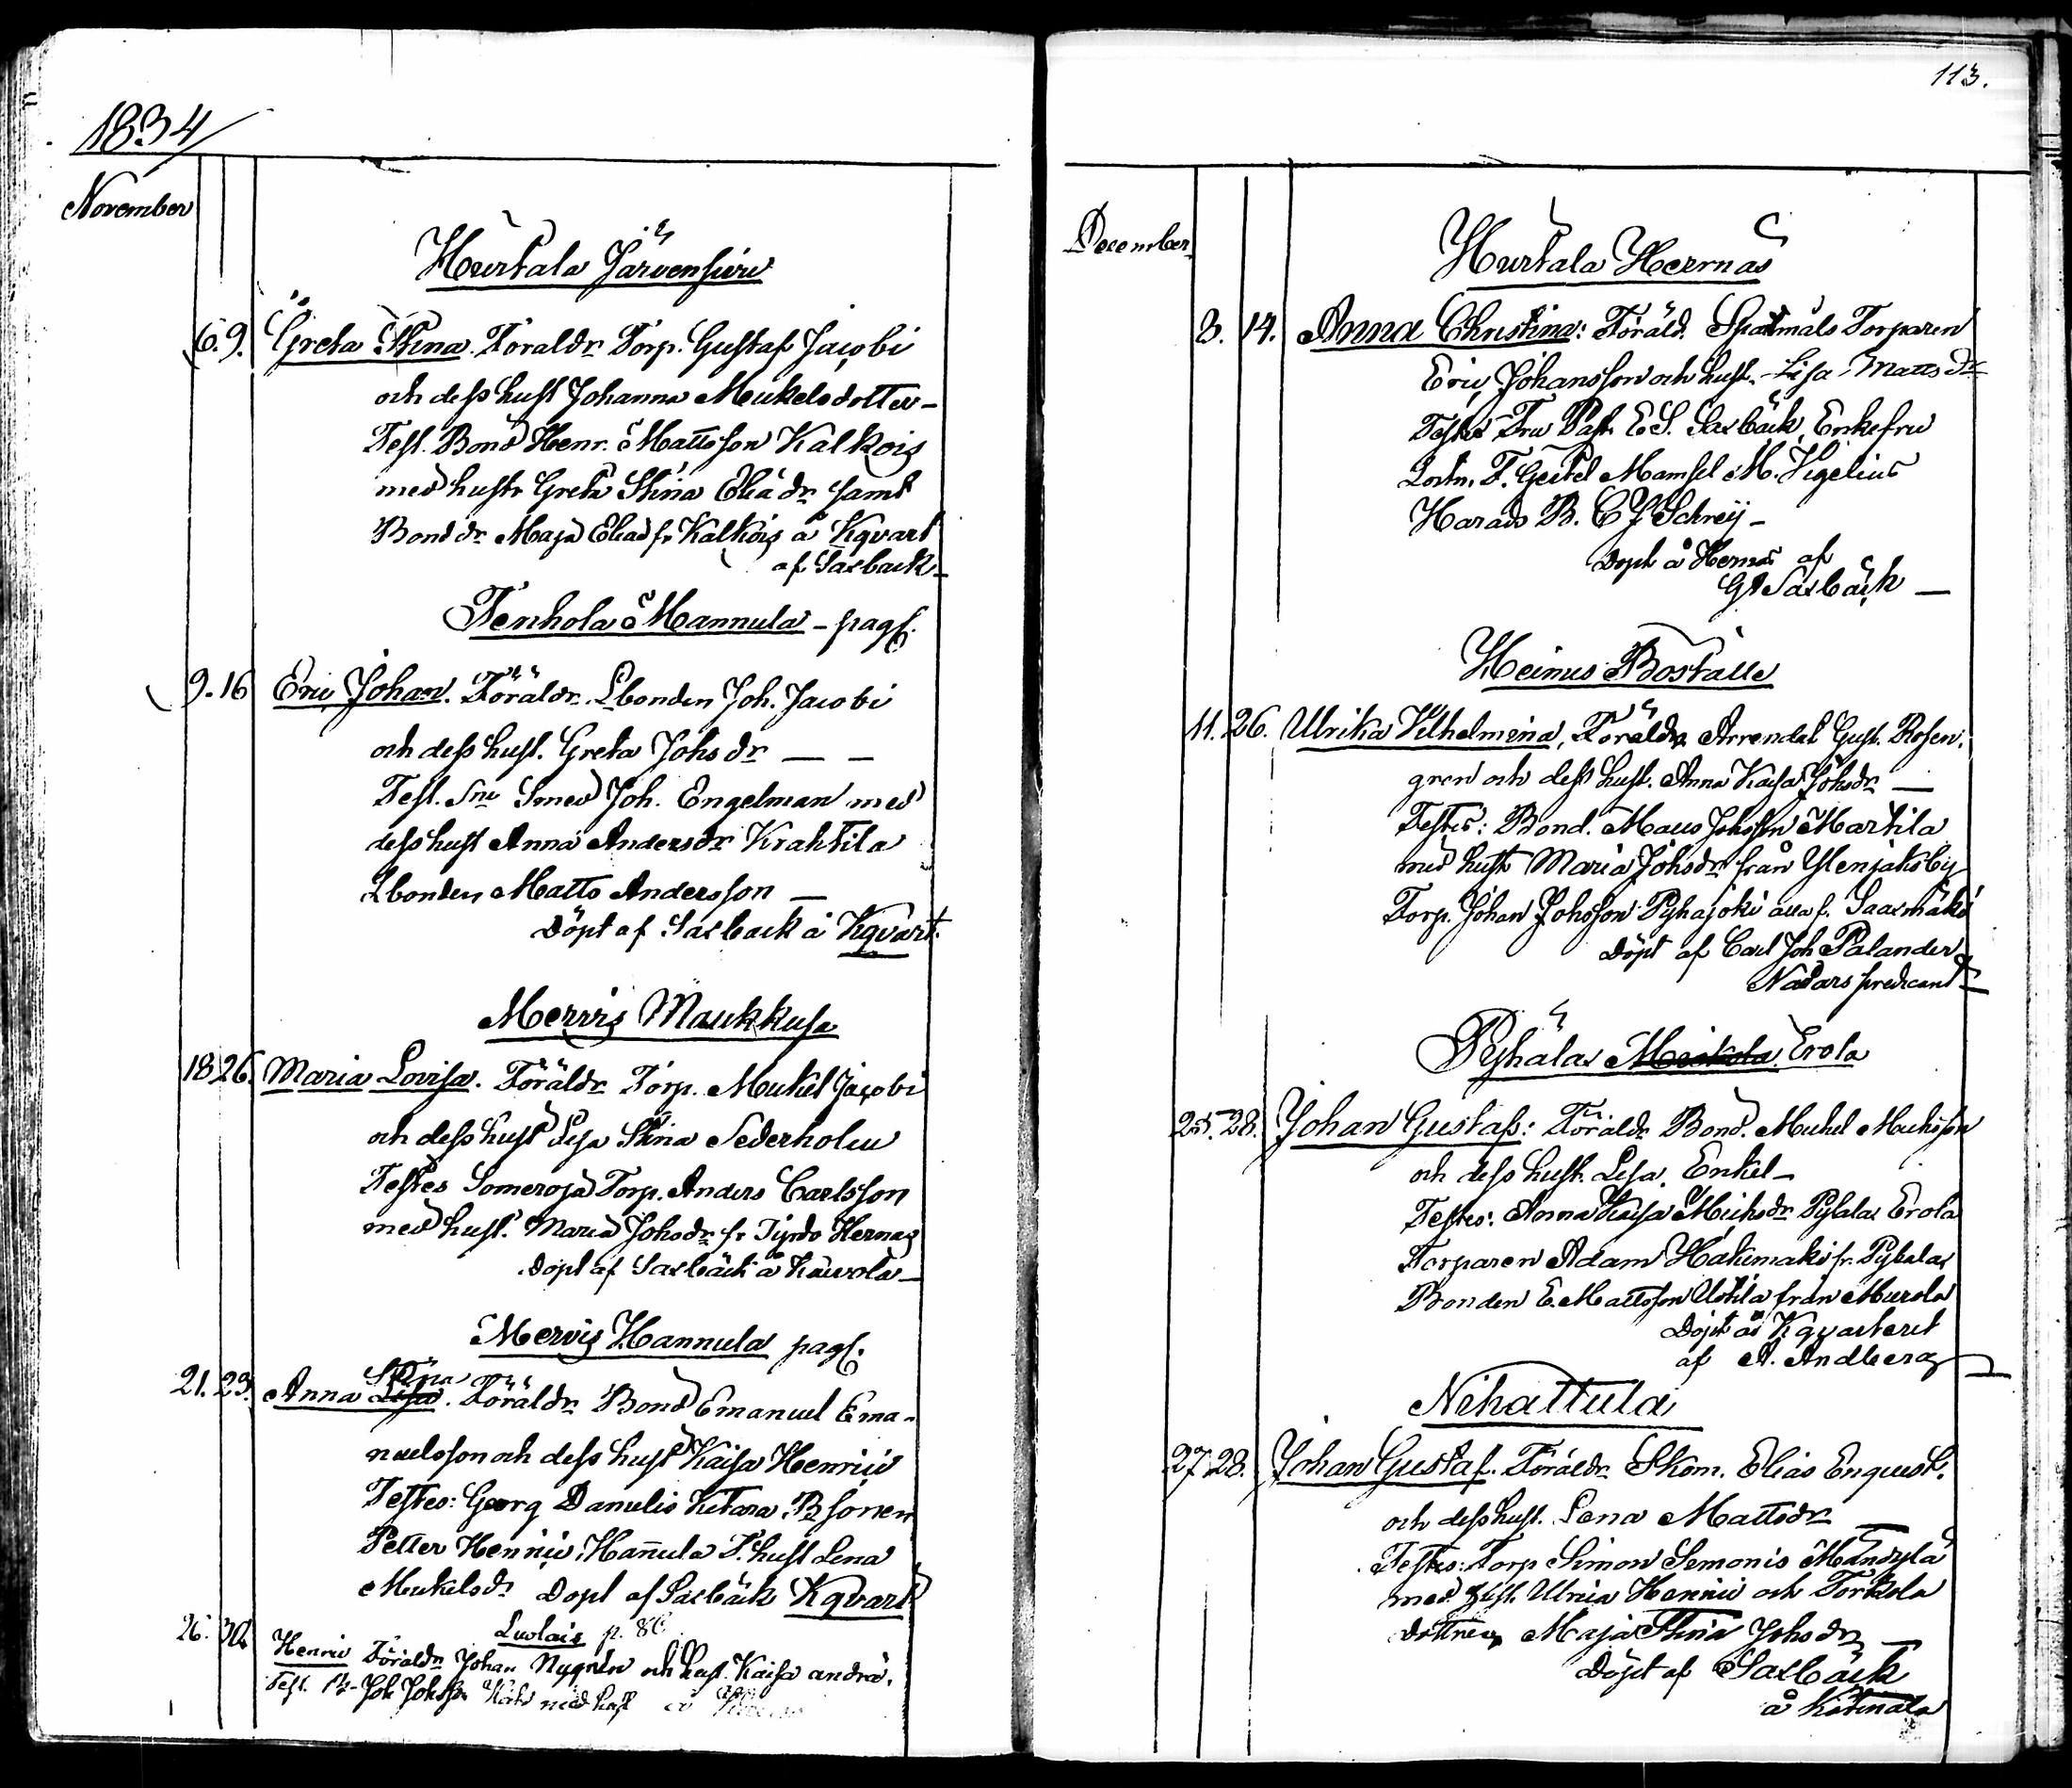 1834
November
Hurtala Järvensivu
6. 9. Greta Stina. Föräldr Torp. Gustaf Jacobi
och dess hust Johanna Mickelsdotter –
Test. Bond Henr. Mattsson Kalkois
med hustr Greta Stina Eliædr samt
Bonddr Maja Eliasd fr Kalkois å Kqvart
af Saxback –
Tenhola Mannula – pag
9. 16 Eric Johan. Föräldr. Lbonden Joh. Jacobi
och dess hust. Greta Johsdr — —
Test. Smed Joh. Engelman med
dess hust Anna Andersdr Krahtila
Lbonden Matts Andersson —
Döpt af Saxback å Kqvart.
Mervis Maukkusa
18 26. Maria Lovisa. Föräldr Torp. Mickel Jacobi
och dess hust Lisa Stina Sederholm
Testes Someroja Torp. Anders Carlsson
med hust. Maria Johsdr fr Hernas
Döpt af Saxbäck å
Mervis Hannula pag.
Stina
21. 23. Anna Lisa. Föräldr Bond Emanuel Ema-
nuelsson och dess hust Kaisa Henrici
Testes: Georg Danielis Kitara Bsonen
Petter Henrici Hannula hust Lena
Mickelsdr Döpt af Saxbäck Kqvart
Luolais p.
26. 30 Henric Föräldr Johan Nygrén och hust. Kaisa andræ.
Test. Joh Johsson med hust
113.
December
Hurtala Hernnäs
3. 14. Anna Christina: Föräld. Spatmåls Torparen
Eric Johansson och hust. Lisa Mattsdr
Testes Fru Past. E S. Saxbäck, Enkefru
Lovtn. F. Mamsel M. Vigelius
Harads B. C J Schreij –
Döpt å Hernäs af
G A Saxbäck —
Heinus Boställe
11. 26. Ulrika Vilhelmina, Föräldr Arrendat. Gust. Rosen-
gren och dess hust. Anna Kaisa Johsdr —
Testes: Bond. Maus Johsson Martila
med hust Maria Johsdr från Ylenjoksby
Torp. Johan Johsson Pyhajoki alla f. Saarmäki
Döpt af Carl Joh Palander
Nådårs predicant
Pyhälax Meskola Erola
25. 28. Johan Gustaf: Föräldr Bond. Michel Michsson
och dess hust. Lisa Enkel –
Testes: Anna Kaisa Michsdr Pyhalax Erola
Torparen Adam Hakimaki fr. Pyhalax
Bonden E. Mattsson Uotila från Murola
Döpt å Kqvarteret
af A. Andberg
Nihattula
27 28. Johan Gustaf. Föräldr Skom. Elias Enquist.
och dess hust. Lena Mattsdr —
Testes: Torp Simon Simonis Mändylä
med hust. Ulrica Henrici och
dottren Maja Stina Johsdr
Döpt af Saxbäck
å Kitmala